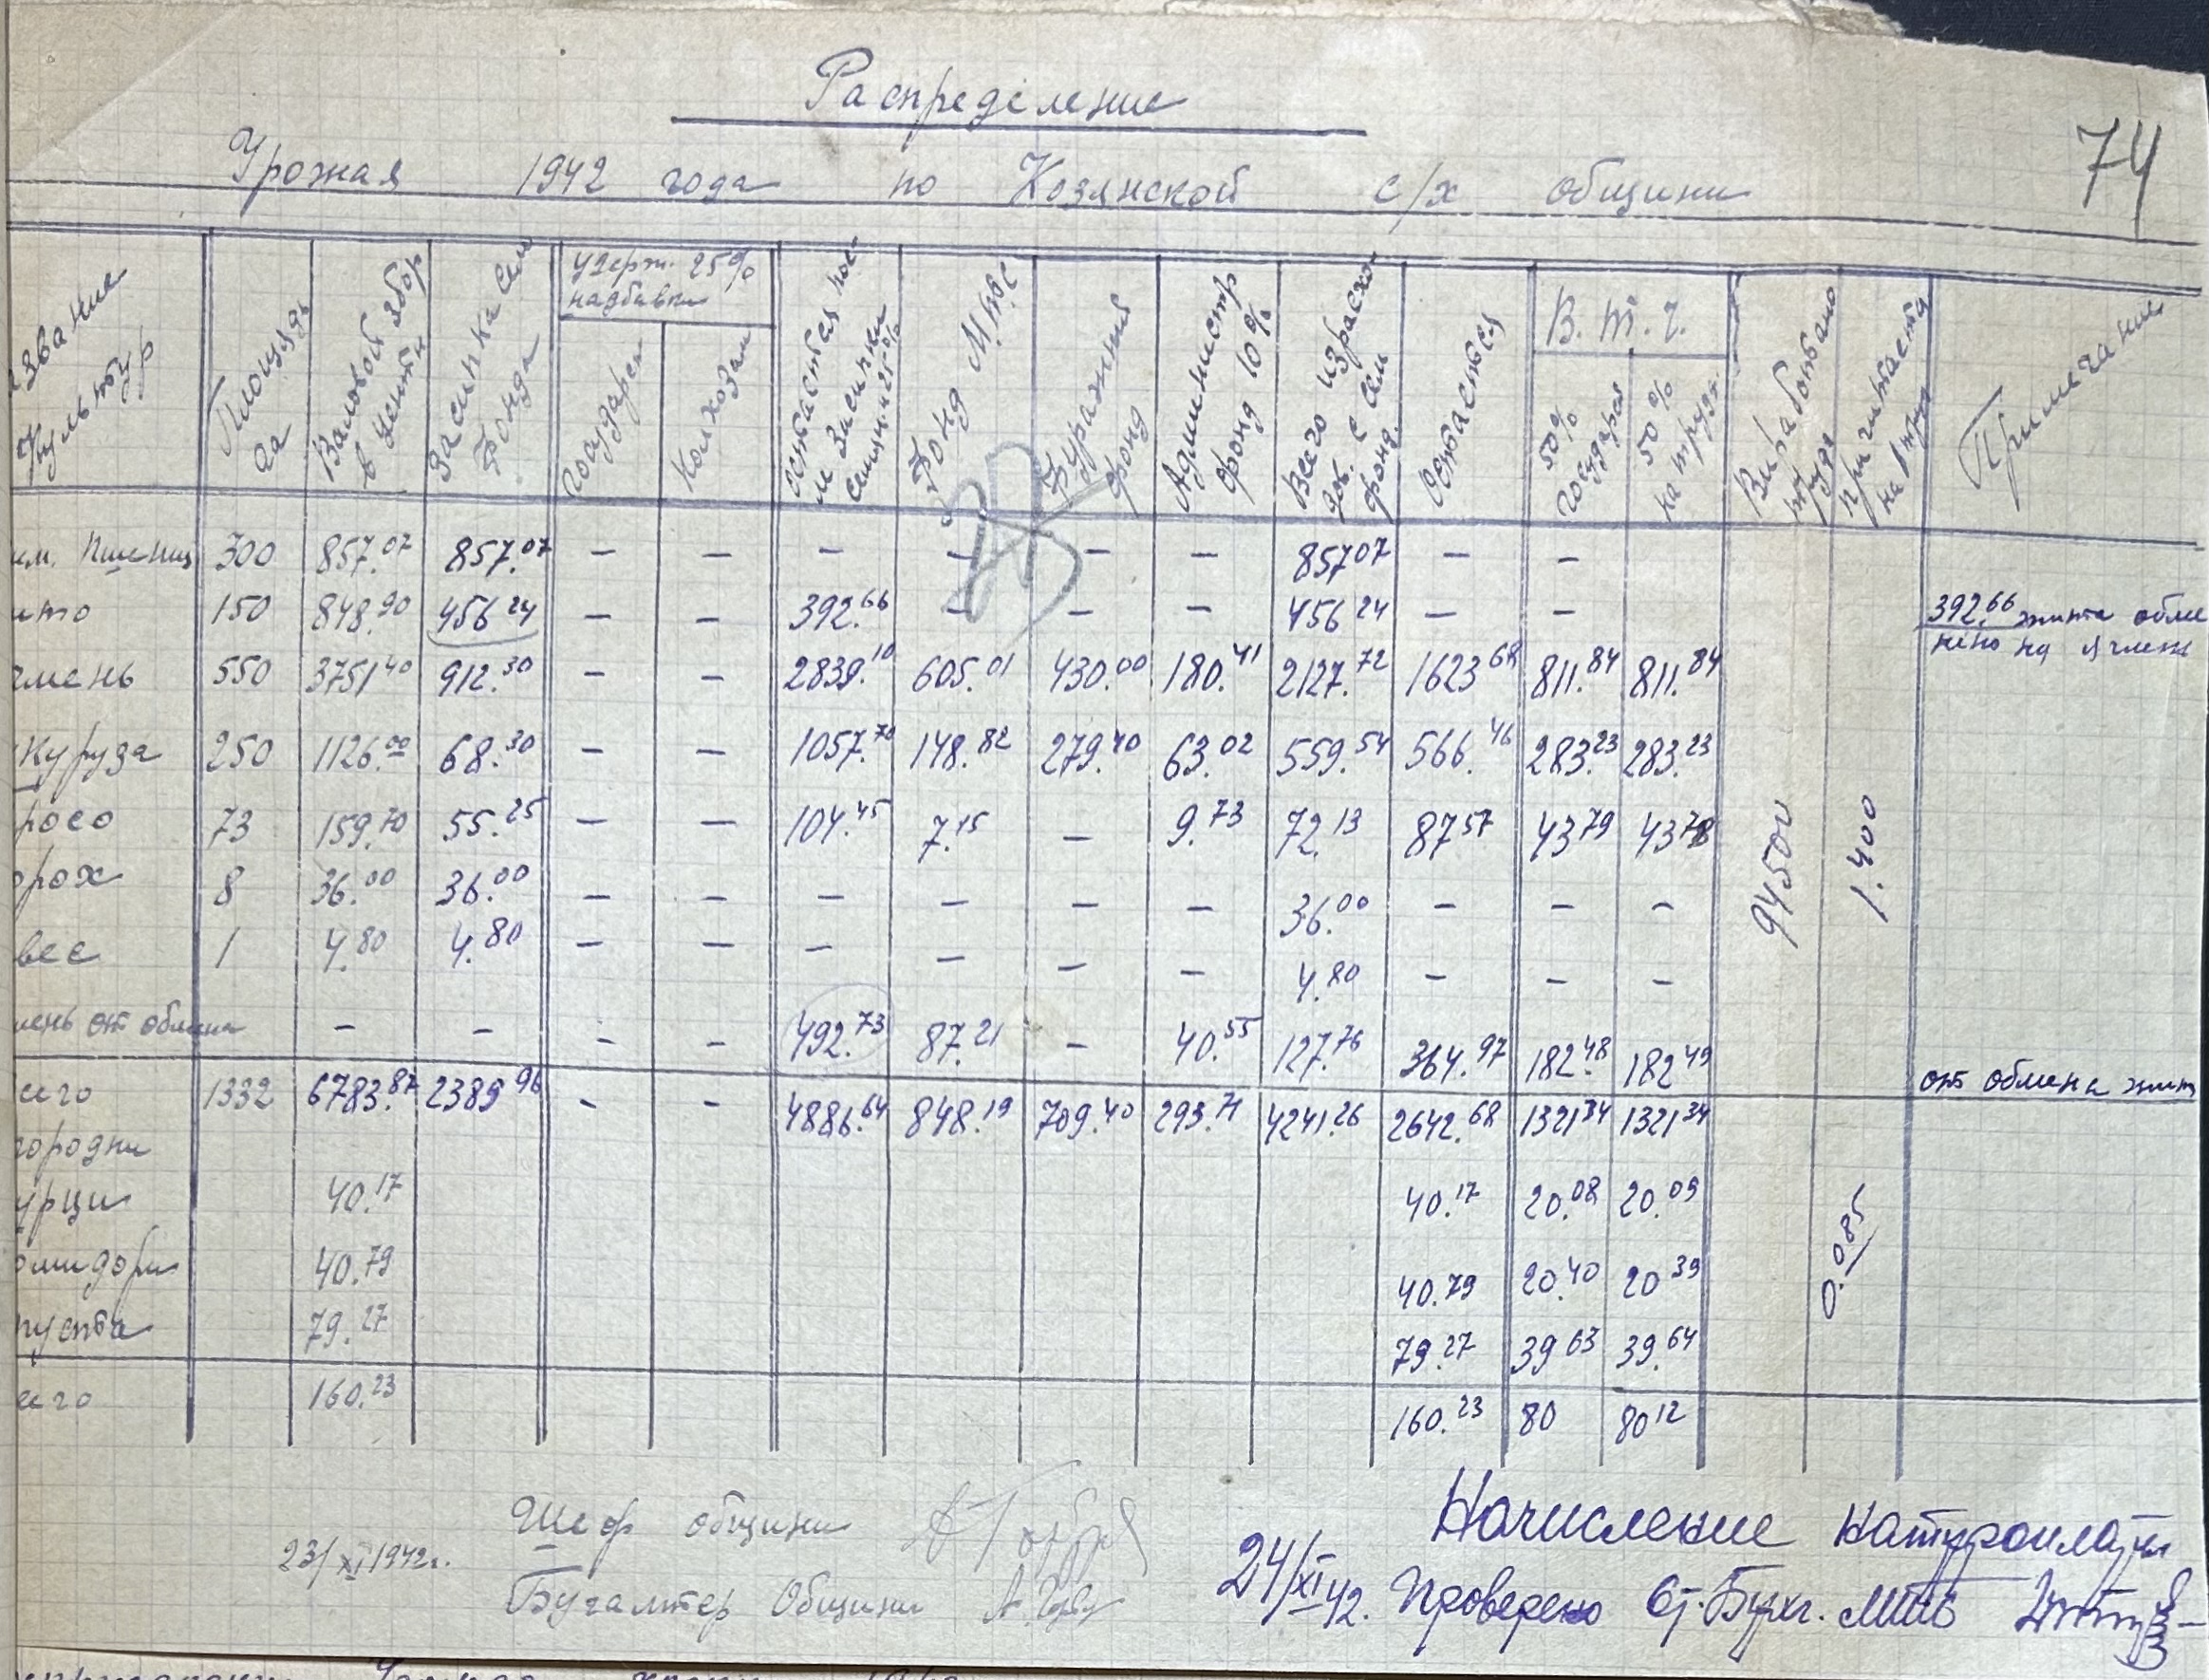 Распределение
74
Урожая 1942 года по Козянской с/х общини
звание культур
Площадь га
Валовой збор в центн
Засипка сем фонда
удерж. 25% надбавки
государст
колхозам
остается пос-
ле засипки
семян и 25%
Фонд МТС
Фуражний фонд
Администр фонд 10%
Всего израсхо-
дов. с сем
фонд.
Остается
В. т. ч.
50% государст
50% на трудд.
Вироботано труд
причитается на 1 труд
Примечание
им. пшениц 300 857.07 857.07 – – – – – – 857 07 – –
ито 150 848.90 456 24 – – 392.66 – – – 456 24 – – 392.66 жита обме
нено на ячмен
чмень 550 3751 40 912.30 – – 2839.10 605.01 430.00 180.41 2127.72 1623 68 811.84 811.84
куруза 250 1126.00 68.30 – – 1057.70 148.82 279.40 63.02 559.54 566.46 283.23 283.23
росо 73 159.70 55.25 – – 104.45 7.15 – 9.73 72.13 87 57 43 79 43 78
94500 1.400
орох 8 36.00 36.00 – – – – – – 36.00 – – –
вес 1 4.80 4.80 – – – – – – 4.80 – – –
мень от обмена – – – – 492.73 87.21 – 40.55 127.76 364.97 182.48 182 49 от обмена жит
сего 1332 6783.87 2389 96 – – 4886.64 848.19 709.40 293.71 4241.26 2642.68 1321 34 1321 34
городни
урци 40.17 40.17 20.08 20.09
0.085
омидори 40.79 40.79 20.40 20 39
пуста 79.27 79.27 39 63 39.64
сего 160.23 160.23 80 80 12
23/XI 1942г.
Шеф общини
Бугалтер Общини
Начисление натуроплаты
24/XI 42. Проверено Ст. Бухг. МТС